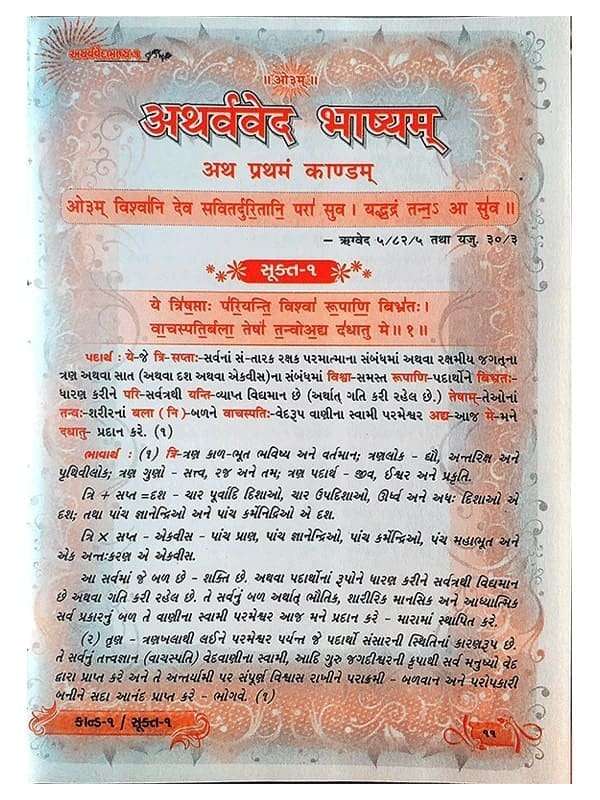 અથર્વવેદભાષ્ય-૧
॥ ओ३म् ॥
અથર્વવેદ ભાષ્યમ્
અથ પ્રથમં કાણ્ડમ્
ओ३म् विश्वा॑नि देव सवितर्दुरि॒तानि॒ परा॑ सुव । यद्भ॒द्रं तन्न॒ऽ आ सु॑व ॥
– ઋગ્વેદ ૫/૮૨/૫ તથા યજુ. ૩૦/૩
સૂક્ત-૧
ये त्रि॑ष॒प्ताः प॑रि॒यन्ति॒ विश्वा॑ रू॒पाणि॒ बिभ्र॑तः ।
वा॒चस्पति॒र्बला॒ तेषां॑ त॒न्वो॑अ॒द्य द॑धातु मे ॥ १॥
પદાર્થ : યે-જે ત્રિ-સપ્તાઃ-સર્વનાં સં-તારક રક્ષક પરમાત્માના સંબંધમાં અથવા રક્ષમીય જગત્‌ના
ત્રણ અથવા સાત (અથવા દશ અથવા એકવીસ)ના સંબંધમાં વિશ્વા-સમસ્ત રૂપાણિ-પદાર્થોને બિભ્રતઃ-
ધારણ કરીને પરિ-સર્વત્રથી યન્તિ-વ્યાપ્ત વિદ્યમાન છે (અર્થાત્ ગતિ કરી રહેલ છે.) તેષામ્-તેઓનાં
તન્વઃ-શરીરનાં બલા (નિ)-બળને વાચસ્પતિઃ-વેદરૂપ વાણીના સ્વામી પરમેશ્વર અદ્ય-આજ મે-મને
દધાતુ- પ્રદાન કરે. (૧)
ભાવાર્થ : (૧) ત્રિ-ત્રણ કાળ-ભૂત ભવિષ્ય અને વર્તમાન; ત્રણલોક - દ્યૌ, અન્તરિક્ષ અને
પૃથિવીલોક; ત્રણ ગુણો - સત્ત્વ, રજ અને તમ; ત્રણ પદાર્થ - જીવ, ઈશ્વર અને પ્રકૃતિ.
ત્રિ + સપ્ત =દશ - ચાર પૂર્વાદિ દિશાઓ, ચાર ઉપદિશાઓ, ઊર્ધ્વ અને અધઃ દિશાઓ એ
દશ; તથા પાંચ જ્ઞાનેન્દ્રિઓ અને પાંચ કર્મેનિદ્રિઓ એ દશ.
ત્રિ × સપ્ત - એકવીસ - પાંચ પ્રાણ, પાંચ જ્ઞાનેન્દ્રિઓ, પાંચ કર્મેન્દ્રિઓ, પંચ મહાભૂત અને
એક અન્તઃકરણ એ એકવીસ.
આ સર્વમાં જે બળ છે - શક્તિ છે. અથવા પદાર્થોનાં રૂપોને ધારણ કરીને સર્વત્રથી વિદ્યમાન
છે અથવા ગતિ કરી રહેલ છે. તે સર્વનું બળ અર્થાત્ ભૌતિક, શારીરિક માનસિક અને આધ્યાત્મિક
સર્વ પ્રકારનું બળ તે વાણીના સ્વામી પરમેશ્વર આજ મને પ્રદાન કરે - મારામાં સ્થાપિત કરે.
(૨) તૃણ - ત્રણખલાથી લઈને પરમેશ્વર પર્યન્ત જે પદાર્થો સંસારની સ્થિતિનાં કારણરૂપ છે.
તે સર્વનું તત્ત્વજ્ઞાન (વાચસ્પતિ) વેદવાણીના સ્વામી, આદિ ગુરુ જગદીશ્વરની કૃપાથી સર્વ મનુષ્યો વેદ
દ્વારા પ્રાપ્ત કરે અને તે અન્તર્યામી પર સંપૂર્ણ વિશ્વાસ રાખીને પરાક્રમી - બળવાન અને પરોપકારી
બનીને સદા આનંદ પ્રાપ્ત કરે - ભોગવે. (૧)
કાન્ડ-૧ / સૂક્ત-૧
૧૧